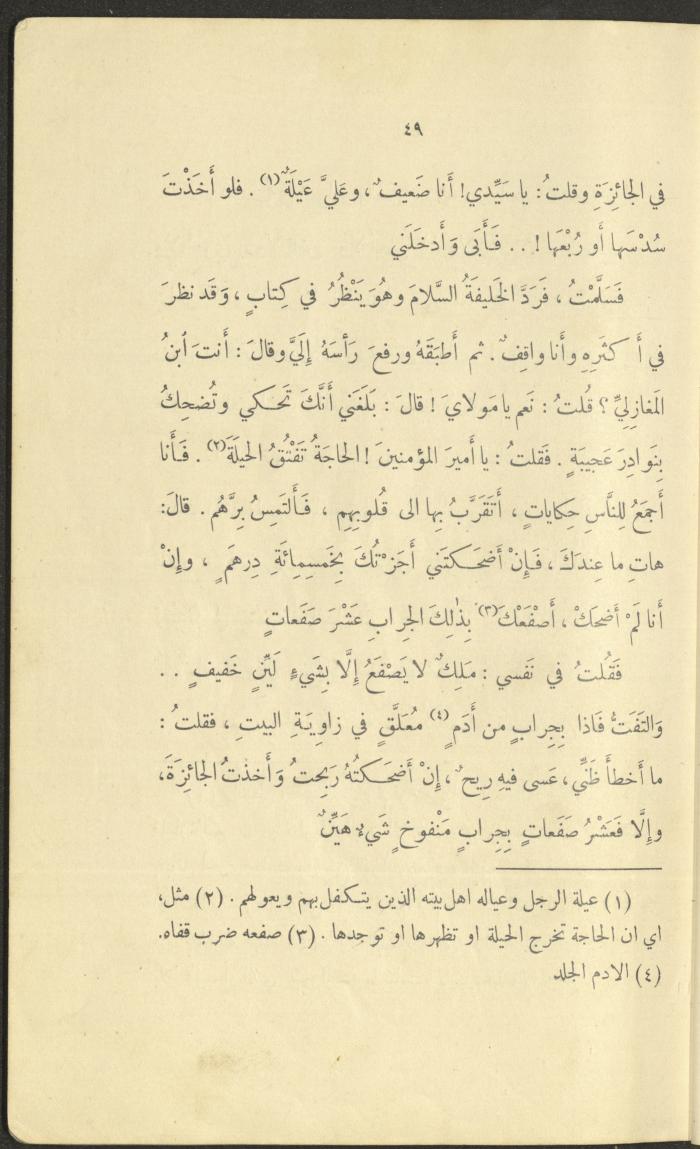 ٤٩
في الجائِزَةِ وقلتُ : يا سَيِّدي! أَنا ضَعيفٌ ، وعَليَّ عَيْلَةٌ (١) . فلو أَخَذْتَ
سُدْسَها أَو رُبْعَها ! . . فَأَبَى وَأَدخَلَني
فَسَلَّمْتُ ، فَرَدَّ الخَليفَةُ السَّلامَ وهُوَ يَنْظُرُ في كِتابٍ ، وَقَد نظرَ
في أَكثَرِهِ وأَنا واقِفٌ . ثم أَطبَقَهُ ورفعَ رَأسَهُ إِلَيَّ وقالَ : أَنتَ ٱبنُ
المَغازِليِّ ؟ قُلتُ : نَعم يا مَولايَ ! قالَ : بَلَغَني أَنَّكَ تَحكي وتُضحِكُ
بِنَوادِرَ عَجيبَةٍ . فَقلتُ : يا أَميرَ المؤمنينَ ! الحاجَةُ تَفْتُقُ الحيلَةَ (٢) . فَأَنا
أَجمَعُ لِلنَّاسِ حِكاياتٍ ، أَتَقَرَّبُ بِها الى قُلوبِهِم ، فَأَلتَمِسُ بِرَّهُم . قالَ :
هاتِ ما عِندَكَ ، فَإِنْ أَضحَكتَني أَجَزْتُكَ بِخَمسِمِائَةِ دِرهَمٍ ، وإِنْ
أَنا لَمْ أَضحَكْ ، أَصْفَعْكَ (٣) بِذٰلِكَ الجِرابِ عَشْرَ صَفَعاتٍ
فَقُلتُ في نَفسي : مَلِكٌ لا يَصْفَعُ إِلَّا بِشَيءٍ لَيِّنٍ خَفيفٍ . .
وَالتَفَتُّ فَاذا بِجِرابٍ من أَدَمٍ (٤) مُعَلَّقٍ في زاوِيَةِ البيتِ ، فقلتُ :
ما أَخطأَ ظَنِّي ، عَسى فيهِ رِيحٌ ، إِنْ أَضحَكتُهُ رَبِحتُ وَأَخذتُ الجائِزَةَ ،
وإِلَّا فَعَشْرُ صَفَعاتٍ بِجِرابٍ مَنْفوخٍ شَيءٌ هَيِّنٌ
(١) عيلة الرجل وعياله اهل بيته الذين يتكفل بهم ويعولهم . (٢) مثل ،
اي ان الحاجة تخرج الحيلة او تظهرها او توجدها . (٣) صفعه ضرب قفاه .
(٤) الادم الجلد